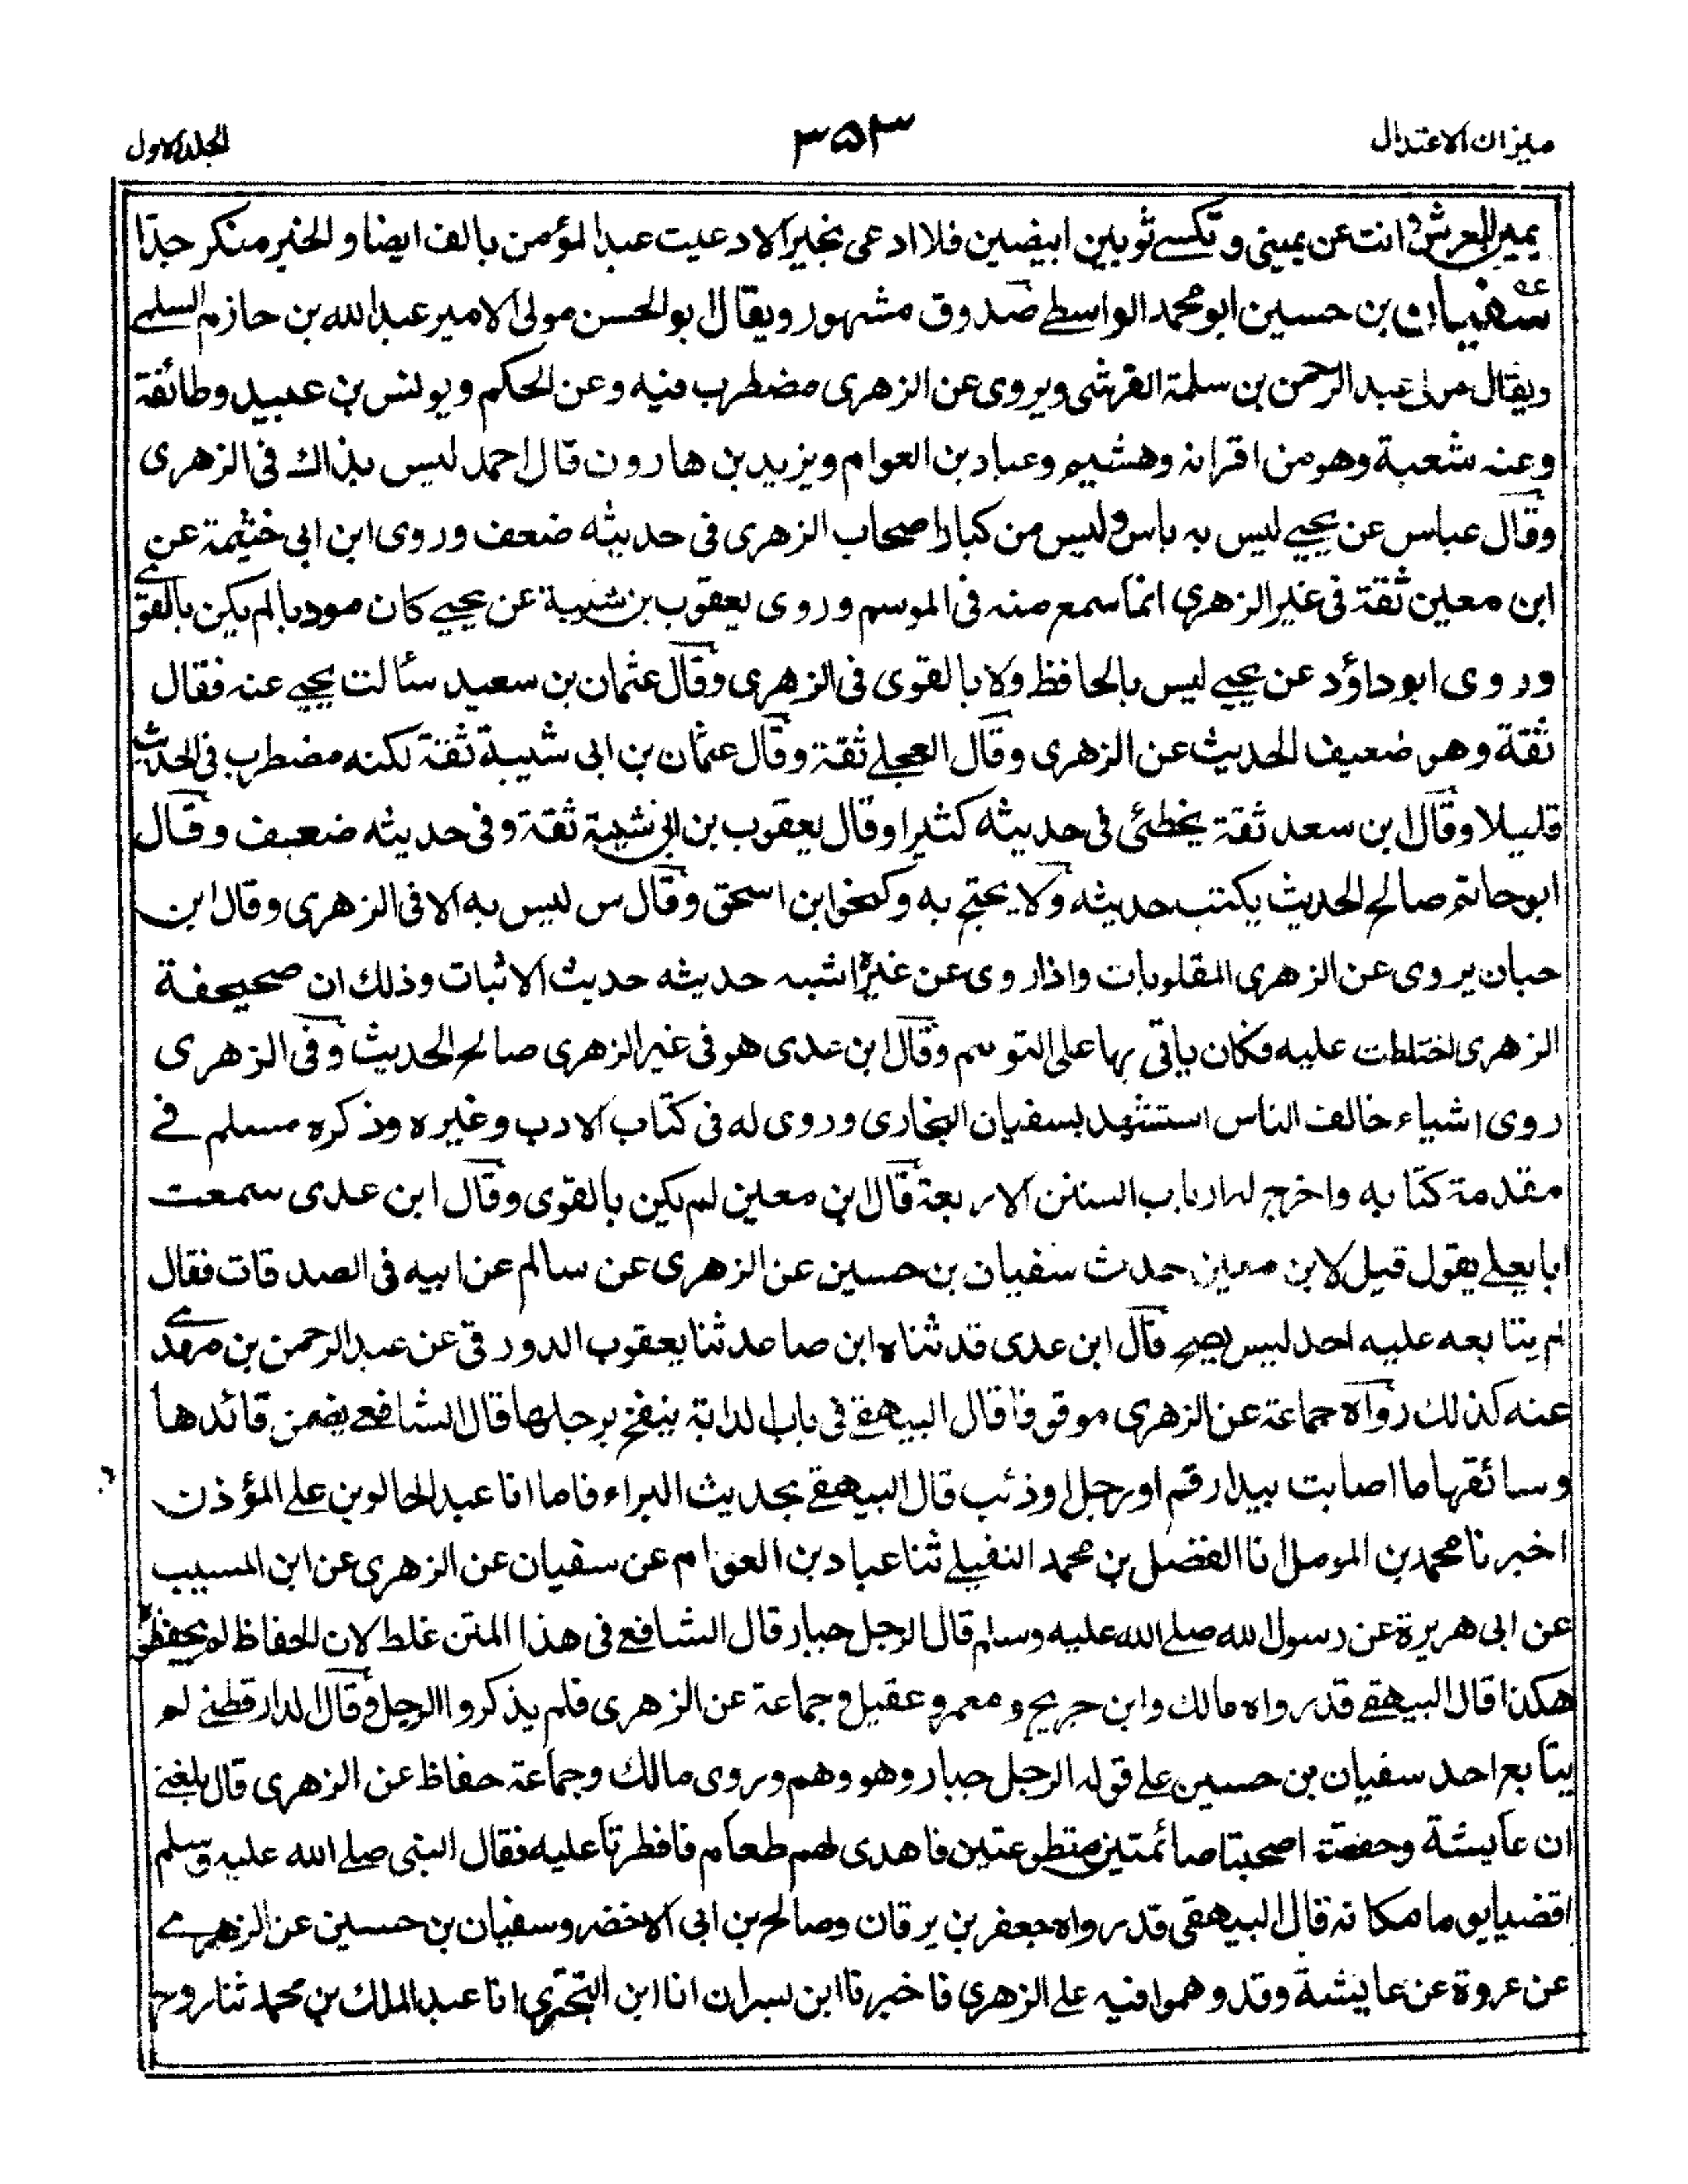 ميزان الاعتدال
۳۵۳
الجلد الاول
يمين العرش وانت عن يميني وتكسى ثوبين ابيضين فلا ادعى بخير الا دعيت عبد المؤمن بالف ايضا والخبر منكر جدا
سفيان بن حسين ابو محمد الواسطے صدوق مشهور ويقال ابو الحسن مولى الامير عبد الله بن حازم السلمے
ويقال مولى عبد الرحمن بن سلمة القرشى ويروى عن الزهرى مضطرب فيه وعن الحكم ويونس بن عبيد وطائفة
وعنه شعبة وهو من اقرانه وهشيم وعباد بن العوام ويزيد بن هارون قال احمد ليس بذاك فى الزهرى
وقال عباس عن يحيے ليس به باس وليس من كبار اصحاب الزهرى فى حديثه ضعف وروى ابن ابى خثيمة عن
ابن معين ثقة فى غير الزهرى انما سمع منه فى الموسم وروى يعقوب بن شيبة عن يحيے كان مودبا لم يكن بالقوى
وروى ابو داؤد عن يحيے ليس بالحافظ ولا بالقوى فى الزهرى وقال عثمان بن سعيد سألت يحيے عنه فقال
ثقة وهو ضعيف الحديث عن الزهرى وقال العجلے ثقة وقال عثمان بن ابى شيبة ثقة لكنه مضطرب فى الحديث
قليلا وقال ابن سعد ثقة يخطئ فى حديثه كثيرا وقال يعقوب بن ابى شيبة ثقة وفى حديثه ضعيف وقال
ابو حاتم صالح الحديث يكتب حديثه ولا يحتج به وكنحو ابن اسحق وقال س ليس به الا فى الزهرى وقال ابن
حبان يروى عن الزهرى المقلوبات واذا روى عن غيره اشبه حديثه حديث الاثبات وذلك ان صحيحفة
الزهرى اختلطت عليه فكان ياتى بها على التوسم وقال ابن عدى هو فى غير الزهرى صالح الحديث وفى الزهرى
روى اشياء خالف الناس استشهد بسفيان البخارى وروى له فى كتاب الادب وغيره وذكره مسلم فے
مقدمة كتابه واخرج له ارباب السنن الاربعة قال ابن معين لم يكن بالقوى وقال ابن عدى سمعت
ابا يعلے يقول قيل لابن معين حدث سفيان بن حسين عن الزهرى عن سالم عن ابيه فى الصدقات فقال
لم يتابعه عليه احد ليس يصح قال ابن عدى قد ثناه ابن صاعد ثنا يعقوب الدورقى عن عبد الرحمن بن مهدے
عنه كذلك رواه جماعة عن الزهرى موقوفا قال البيهقے فى باب الدابة ينفخ برجلها قال الشافعے يضمن قائدها
وسائقها ما اصابت بيد ارقم او رجل او ذئب قال البيهقے بحديث البراء فاما انا عبد الخالق بن علے المؤذن
اخبرنا محمد بن المومل انا الفضل بن محمد النفيلے ثنا عباد بن العوام عن سفيان عن الزهرى عن ابن المسيب
عن ابى هريرة عن رسول الله صلے الله عليه وسلم قال الرجل جبار قال الشافعے فى هذا المتن غلط لان الحفاظ لم يحفظوه
هكذا قال البيهقے قد رواه مالك وابن جريح ومعمر وعقيل وجماعة عن الزهرى فلم يذكروا الرجل وقال الدارقطنے لم
يتابع احد سفيان بن حسين علے قوله الرجل جبار وهو وهم وروى مالك وجماعة حفاظ عن الزهرى قال بلغنے
ان عايشة وحفصة اصحبتا صائمتين متطوعتين فاهدى لهم طعام فافطرتا عليه فقال النبى صلے الله عليه وسلم
اقضيا يوما مكانه قال البيهقى قد رواه جعفر بن يرقان وصالح بن ابى الاخضر وسفيان بن حسين عن الزهرے
عن عروة عن عايشة وقد وهموا فيه علے الزهرى فاخبرنا ابن بسران انا ابن التجترى انا عبد الملك بن محمد ثنا روح